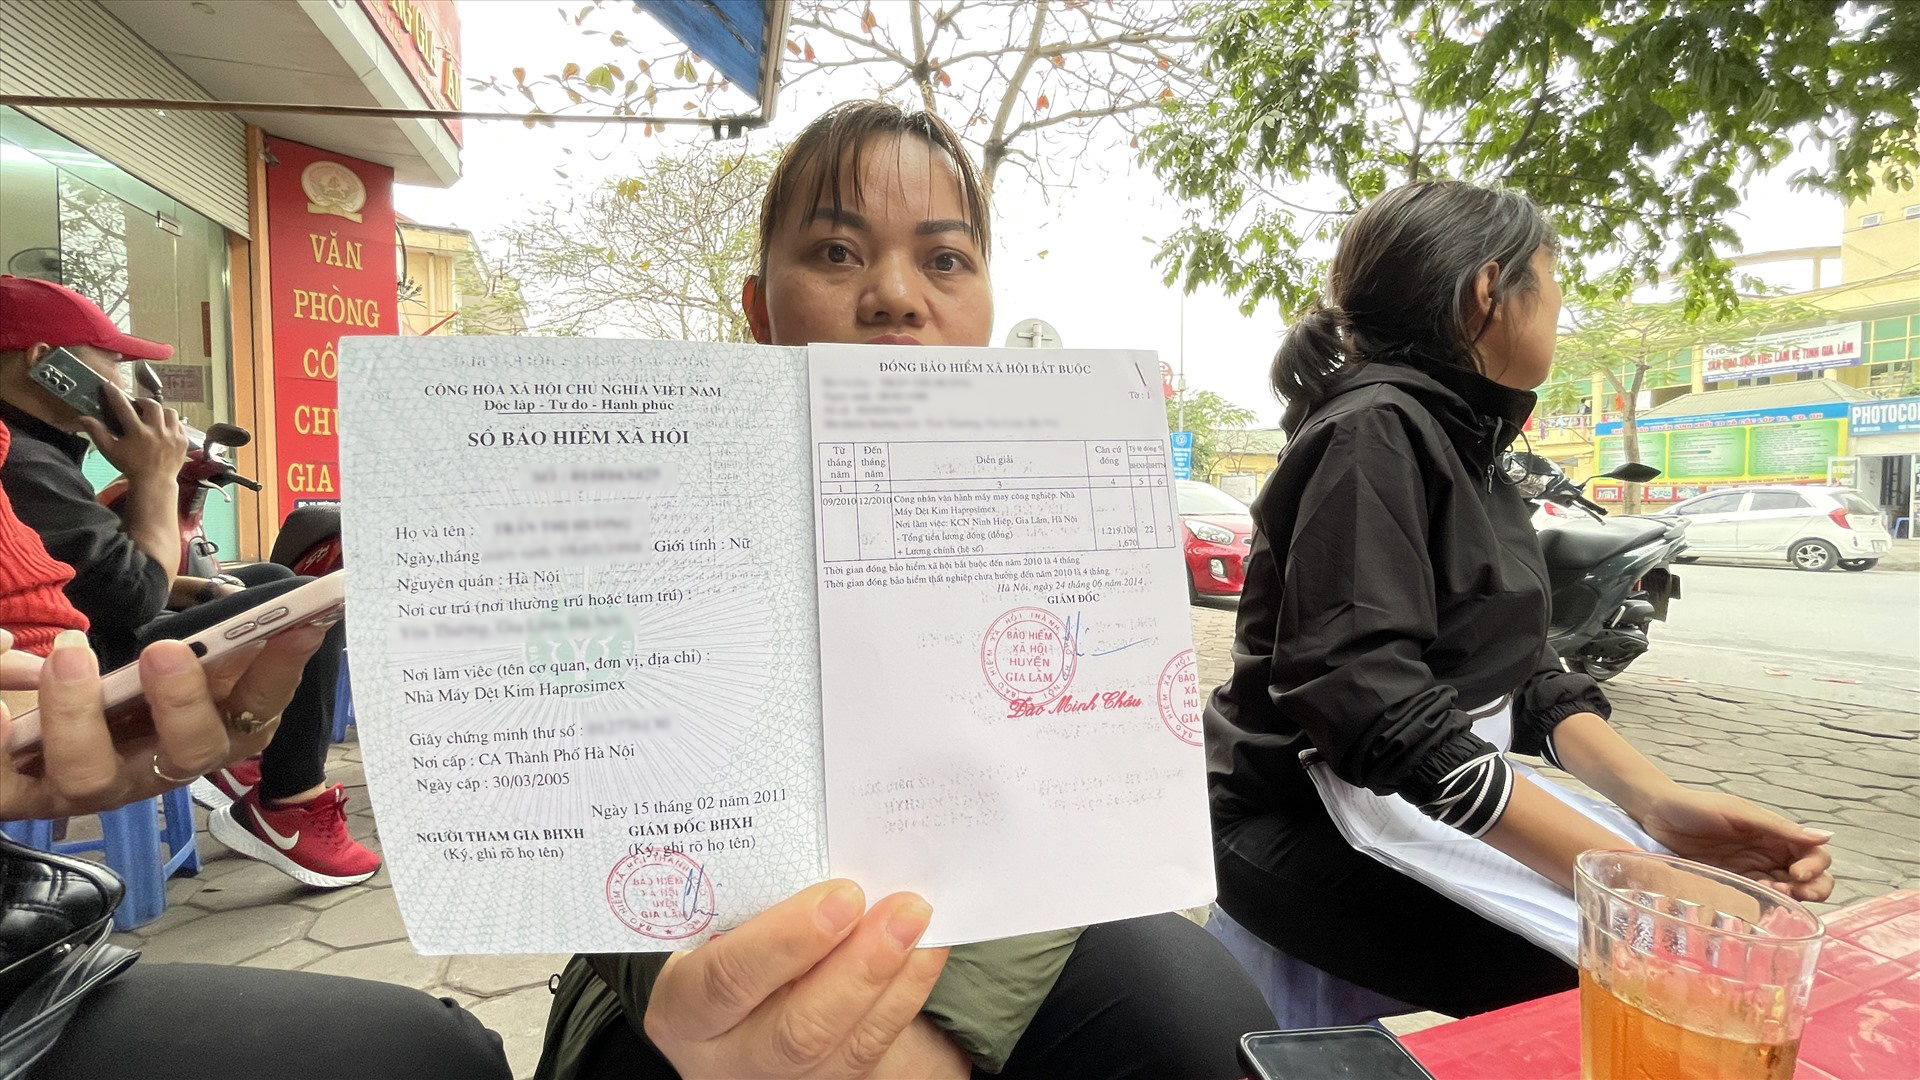 VĂN
PHÒNG
CÔ
CHỨ
GIA
CỘNG HÒA XÃ HỘI CHỦ NGHĨA VIỆT NAM
Độc lập - Tự do - Hạnh phúc
SỔ BẢO HIỂM XÃ HỘI
Họ và tên :
Ngày,tháng
Giới tính : Nữ
Nguyên quán : Hà Nội
Nơi cư trú (nơi thường trú hoặc tạm trú) :
Nơi làm việc (tên cơ quan, đơn vị, địa chỉ) :
Nhà Máy Dệt Kim Haprosimex
Giấy chứng minh thư số :
Nơi cấp : CA Thành Phố Hà Nội
Ngày cấp : 30/03/2005
Ngày 15 tháng 02 năm 2011
NGƯỜI THAM GIA BHXH
GIÁM ĐỐC BHXH
(Ký, ghi rõ họ tên)
(Ký, ghi rõ họ tên)
BẢO HIỂM
XÃ HỘI
HUYỆN
GIA LÂM
ĐÓNG BẢO HIỂM XÃ HỘI BẮT BUỘC
Tờ : 1
Từ tháng năm
Đến tháng năm
Diễn giải
Căn cứ đóng
Tỷ lệ đóng %
BHXH
BHTN
1 2 3 4 5 6
09/2010 12/2010 Công nhân vận hành máy may công nghiệp. Nhà
Máy Dệt Kim Haprosimex
Nơi làm việc: KCN Ninh Hiệp, Gia Lâm, Hà Nội
- Tổng tiền lương đóng (đồng) 1.219.100 22 3
+ Lương chính (hệ số) 1,670
Thời gian đóng bảo hiểm xã hội bắt buộc đến năm 2010 là 4 tháng
Thời gian đóng bảo hiểm thất nghiệp chưa hưởng đến năm 2010 là 4 tháng.
Hà Nội, ngày 24 tháng 06 năm 2014
GIÁM ĐỐC
BẢO HIỂM
XÃ HỘI
HUYỆN
GIA LÂM
Đào Minh Châu
BẢO
XÃ
HU
GIA
SÀN GIAO DỊCH VIỆC LÀM VỆ TINH GIA LÂM
PHOTOCO